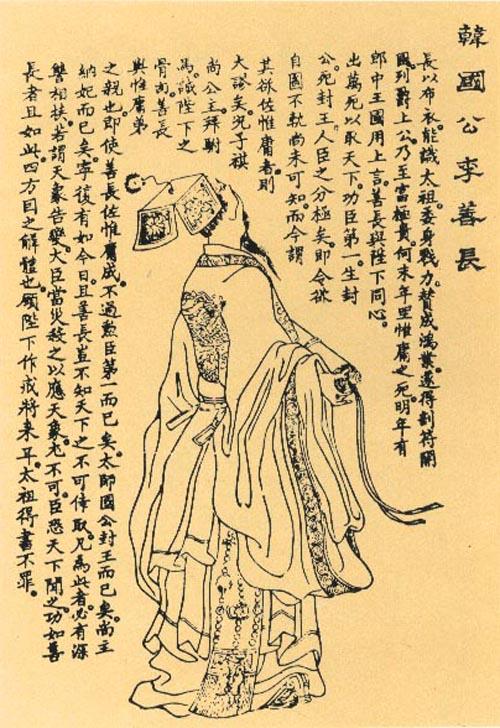 韓國公李善長
長以布衣能識太祖。委身戮力。贊成鴻業。遂得剖符開
國列爵上公。乃至富極貴。何末年里惟庸之死。明年有
郎中王國用上言。善長與陛下同心。
出萬死以取天下。功臣第一生封
公。死封王人臣之分極矣。即令欲
自圖不軌尚未可知。而今謂
其欲佐惟庸者。則
大謬矣。況子祺
尚公主拜駙
馬。誠陛下之
骨肉。善長
與惟庸弟
之親也。即使善長佐惟庸成。不過勲臣第一而已矣。太師國公封王而已矣。尚主
納妃而已矣。寧復有如今日。且善長豈不知天下之不可倖取。兄為此者。必有深
讐相挾。若謂天象告變。大臣當災。殺之以應天象。尤不可。臣恐天下聞之。功如善
長者且如此。四方因之解體也。願陛下作戒將來耳。太祖得書不罪。